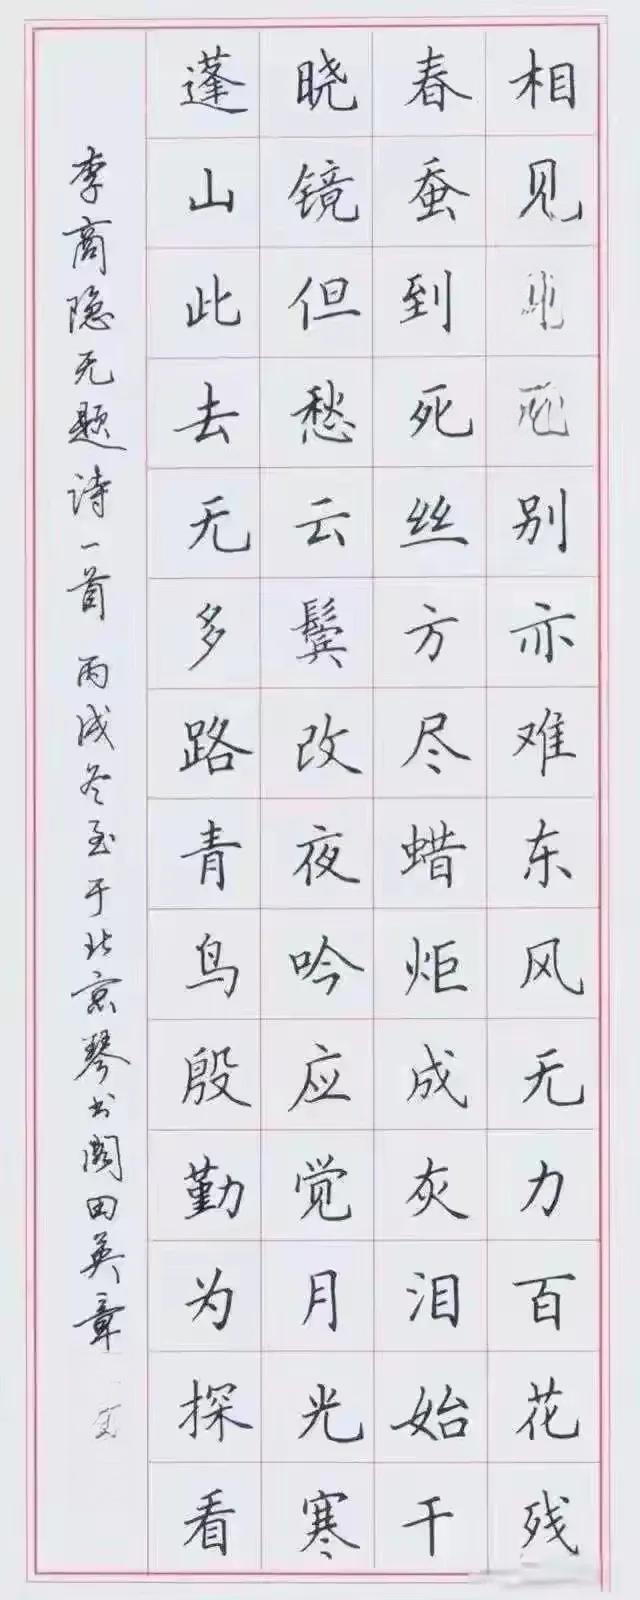 相见别亦难东风无力百花残
春蚕到死丝方尽蜡炬成灰泪始干
晓镜但愁云鬓改夜吟应觉月光寒
蓬山此去无多路青鸟殷勤为探看
李商隐无题诗一首 丙戌冬至于北京琴书阁田英章